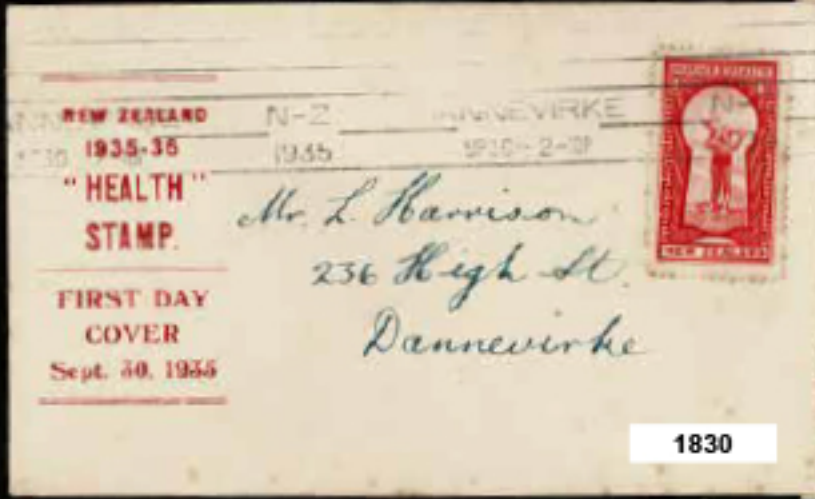 NEW ZEALAND
1935-36
"HEALTH"
STAMP.
FIRST DAY
COVER
Sept. 30, 1935
N-Z
1935
DANNEVIRKE
Mr. L. Harrison
236 High St.
Dannevirke
NEW ZEALAND
1830